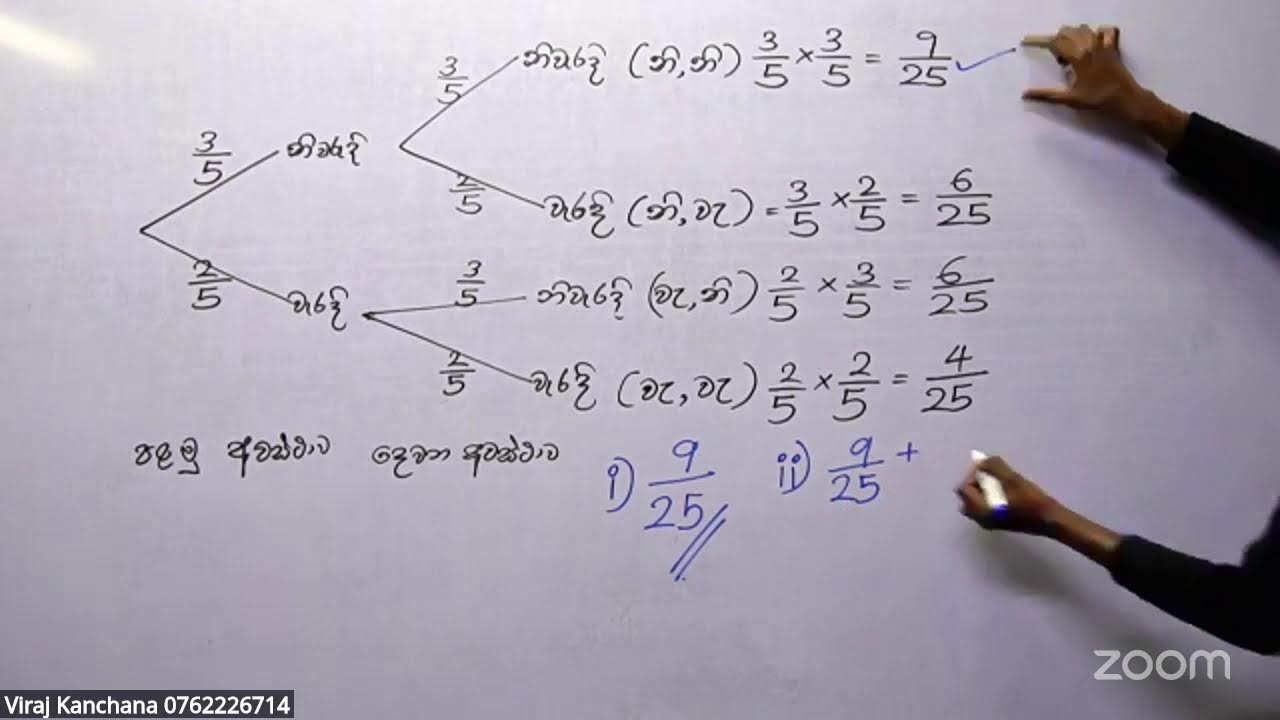 3/5 නිවැරදි (නි,නි) 3/5 × 3/5 = 9/25 ✓
3/5 නිවැරදි
2/5 වැරදි (නි,වැ) = 3/5 × 2/5 = 6/25
2/5 වැරදි
3/5 නිවැරදි (වැ,නි) 2/5 × 3/5 = 6/25
2/5 වැරදි (වැ,වැ) 2/5 × 2/5 = 4/25
පළමු අවස්ථාව දෙවන අවස්ථාව
i) 9/25 ii) 9/25 +
zoom
Viraj Kanchana 0762226714